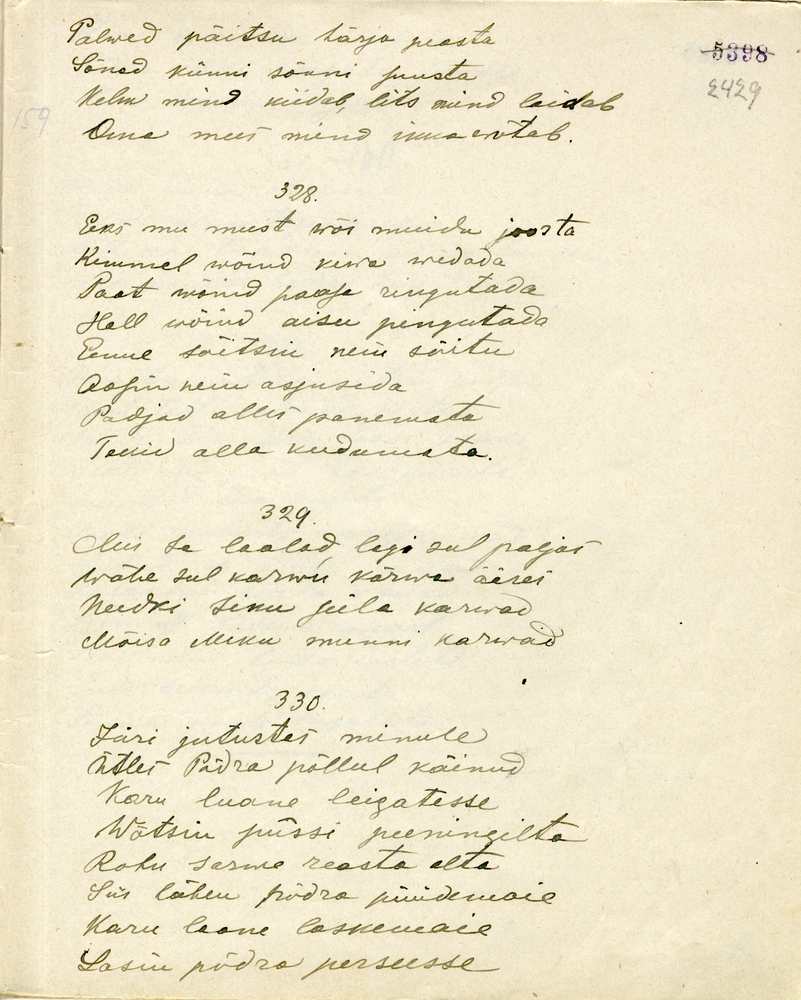 Palwed päitsu härja peasta
Sõnad künni sõnni suusta
Kelm mind kiidab, lits mind laidab
Oma mees mind ikka wõtab.
5398
2429
159
328.
Eks mu meest wõi muidu joosta
Kimmel wõind kiwa wedada
Paat wõind paaja ringutada
Hall wõind aisu pingutada
Enne sõitsin nein sõitu
Aasin nein asjusida
Padjad alles panemata
Tekid alla kudumata.
329.
Mis sa laalad, lagi sul paljas
Wähe sul karwu kõrwa ääres
Needki sinu karwad
Mõisa Miku munni karwad
330.
Jüri jutustas minule
Ütles Põdra põllul käinud
Karu luane leigatesse
Wõtsin püssi peeningilta
Rohu sarwe reasta alta
Siis läksin põdra püüdemaie
Karu laane laskemaie
Lasin põdra persesse